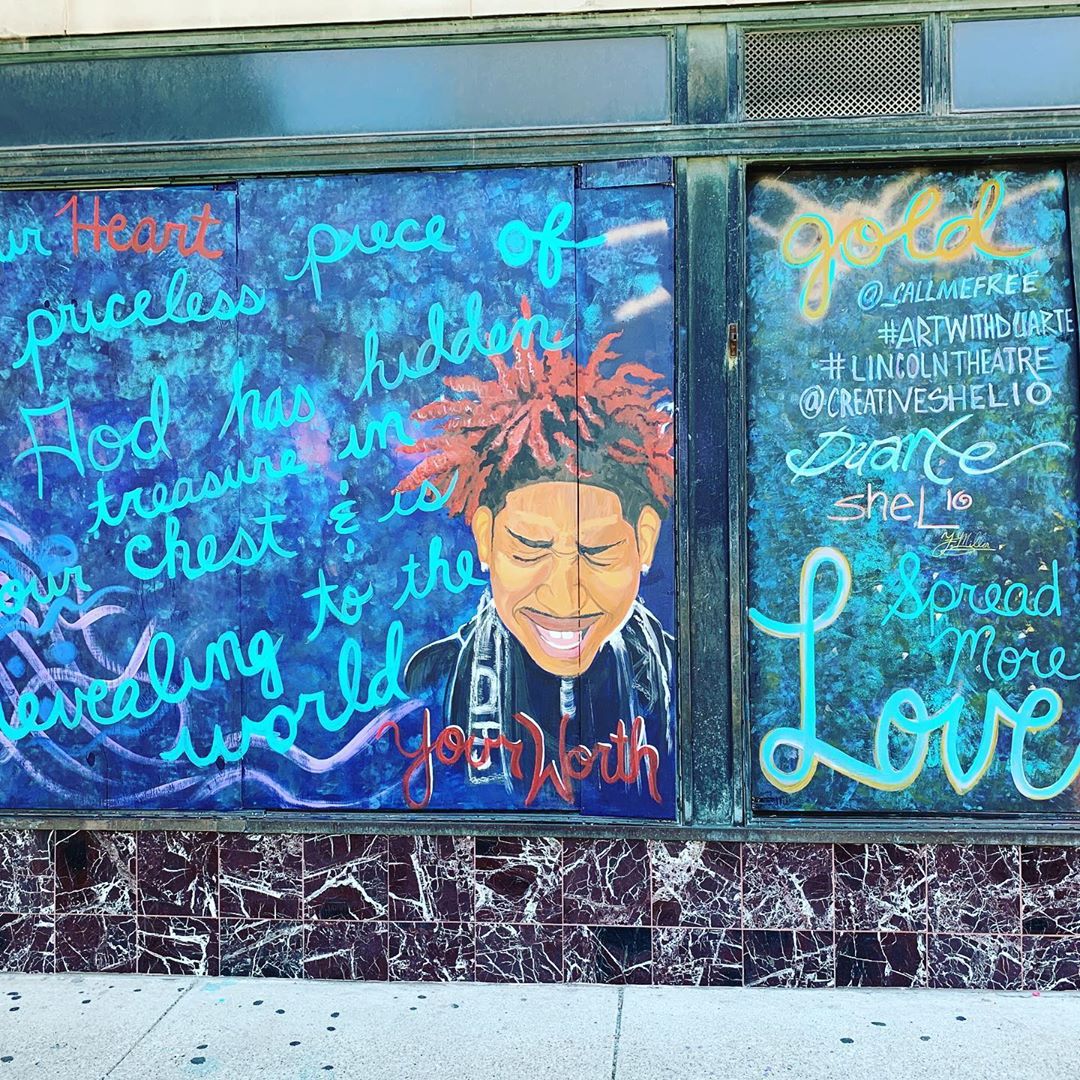 ur Heart
priceless piece of
God has hidden
treasure in
our chest & is
revealing to the
world
Your Worth
gold
@_CALLMEFREE
#ARTWITHDUARTE
#LINCOLNTHEATRE
@CREATIVESHEL10
Duarte
SHeL10
Spread
More
Love